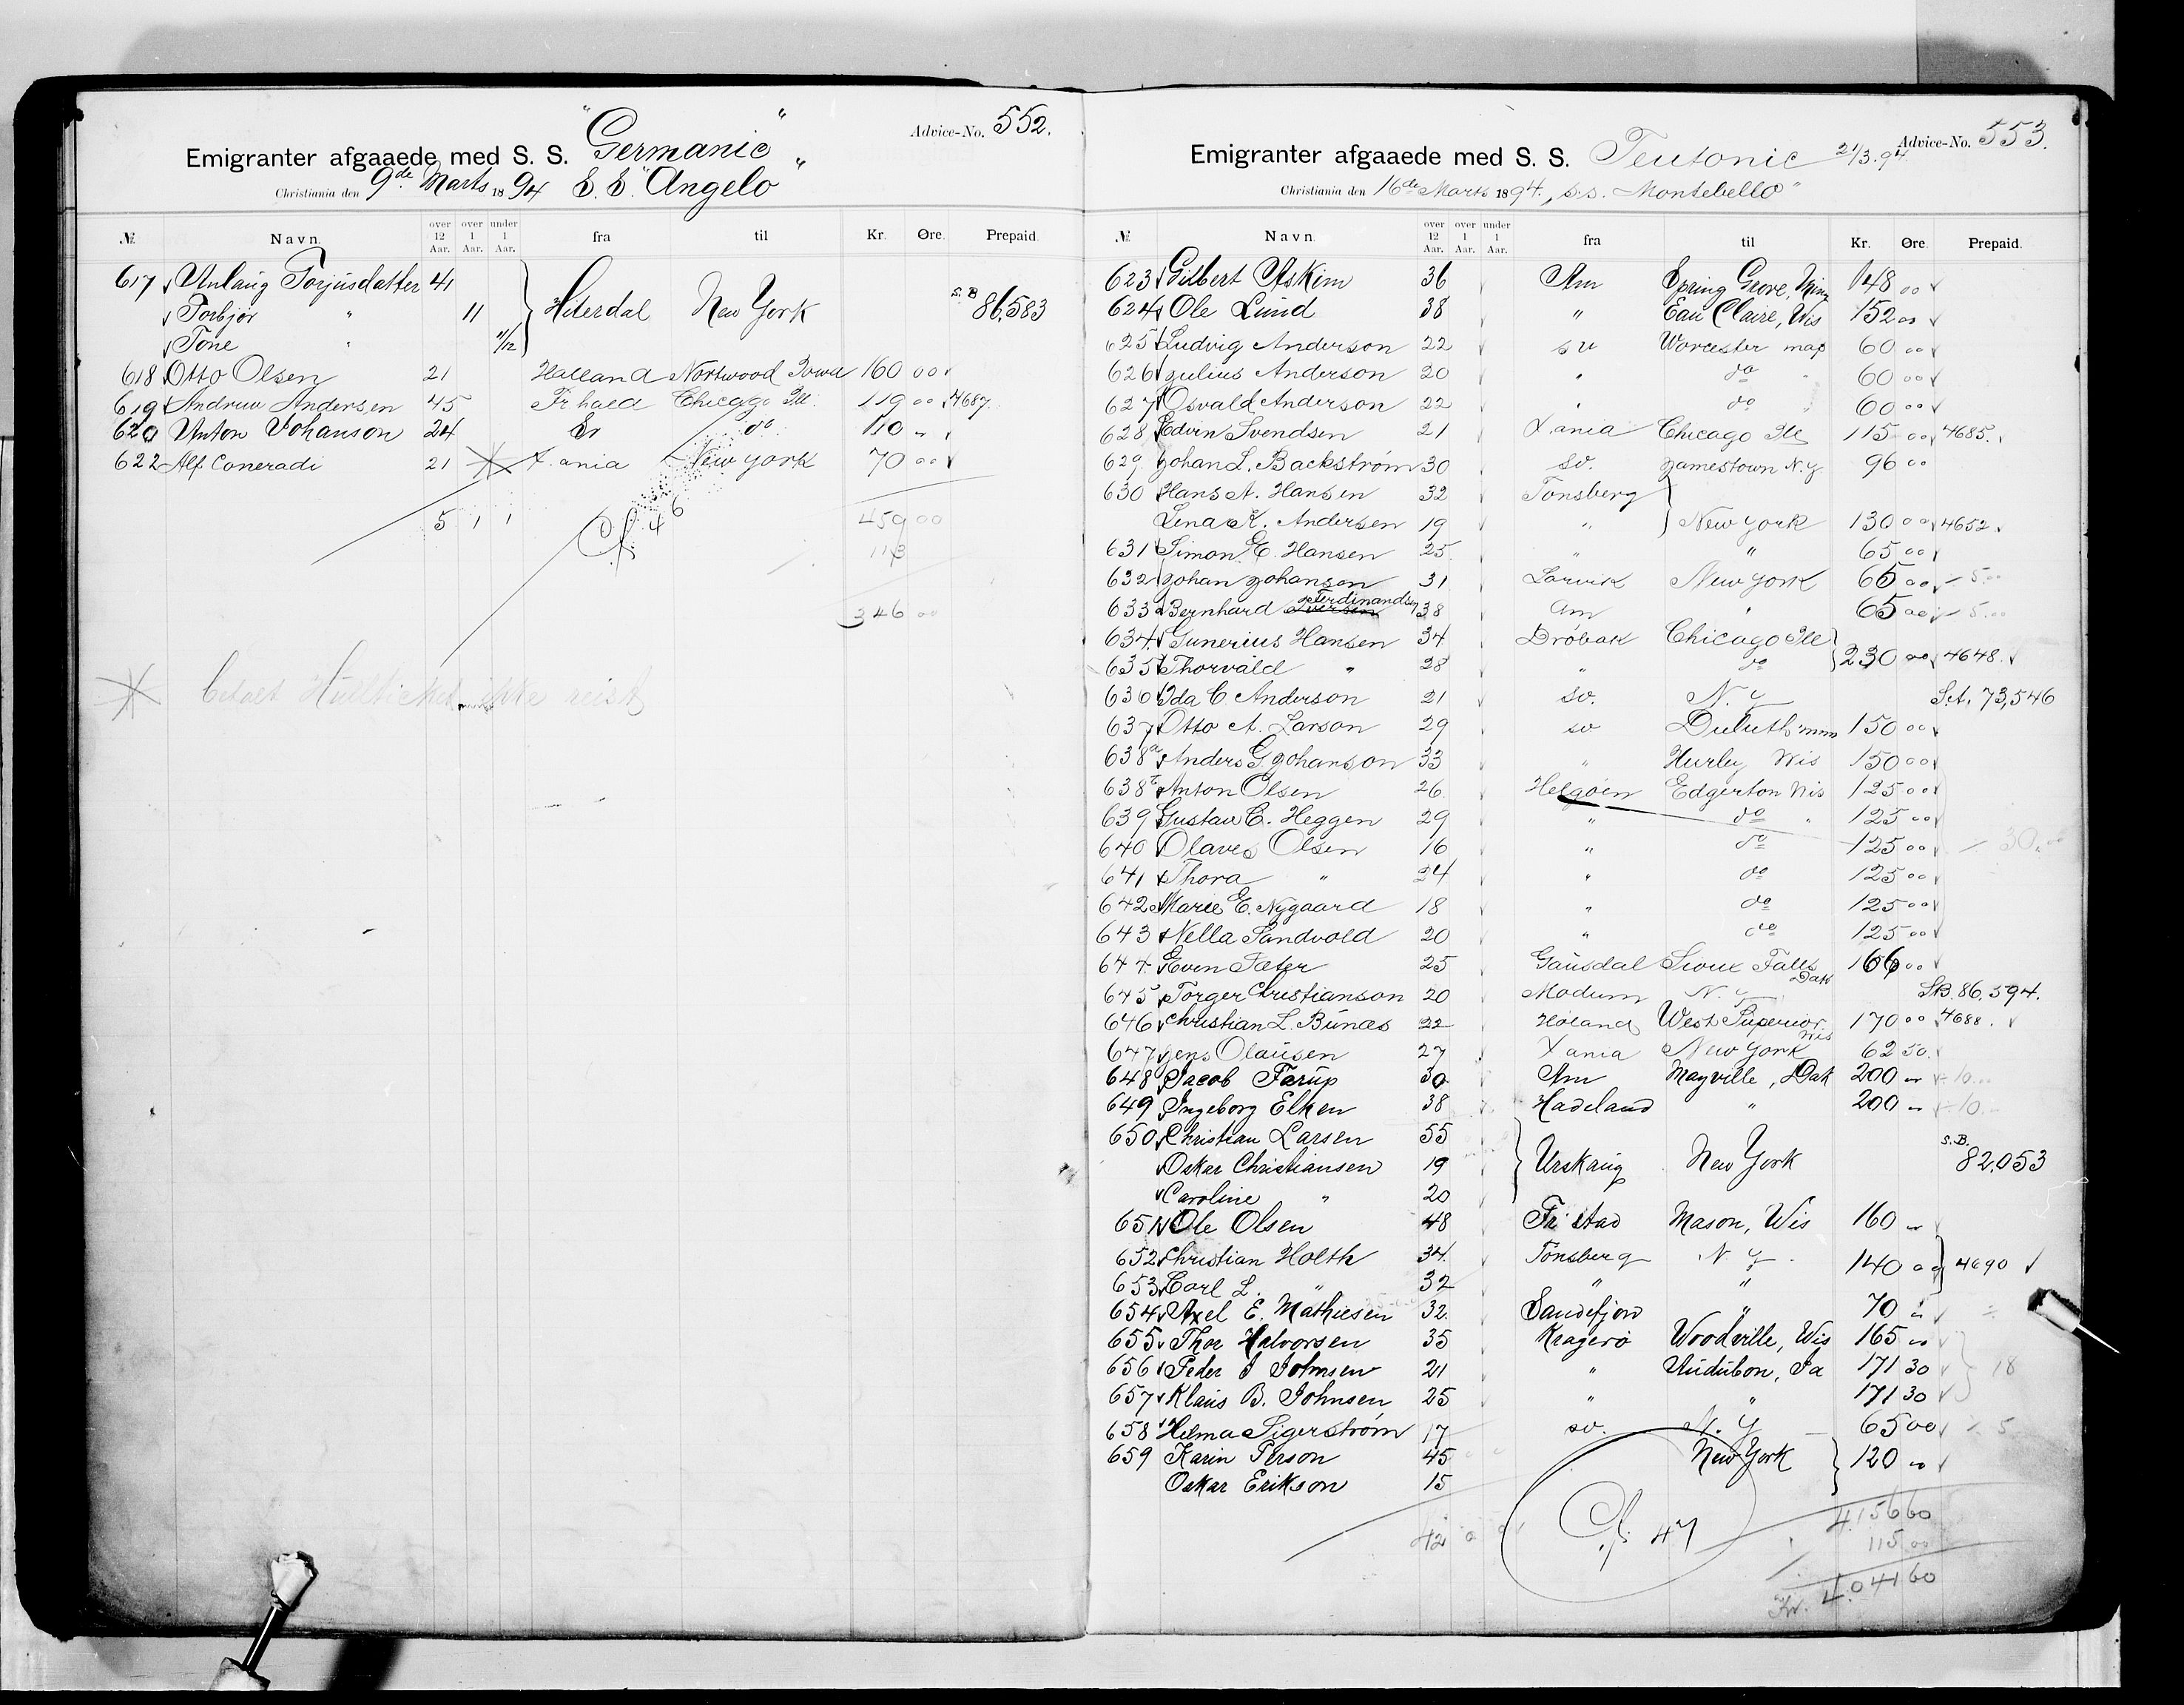 "Germanic"
Advice-No. 552.
Emigranter afgaaede med S. S.
Christiania den 9de Marts 1894 S. S. "Angelo"
№ Navn. over 12 Aar. over 1 Aar. under 1 Aar. fra til Kr. Øre. Prepaid.
617 Anlaug Torjusdatter 41
Torbjør " 11 Hiterdal New York S.B 86,583
Tone " 11/12
618 Otto Olsen 21 Halland Northwood Iowa 160 00
619 Andrew Andersen 45 Fr hald Chicago Ill. 119 00 4687
620 Anton Johanson 24 Sv do 110 "
622 Alf Coneradi 21 X.ania New York 70 00
5 1 1 Cf. 46 459 00
113
346 00
betalt Hullticket ikke reist
Advice-No. 553.
Emigranter afgaaede med S. S. Teutonic 21/3.94
Christiania den 16de Marts 1894, s.s. Montebello"
№ Navn. over 12 Aar. over 1 Aar. under 1 Aar. fra til Kr. Øre. Prepaid.
623 Gilbert Askim 36 Am Spring Grove, Minn 148 00
624 Ole Lund 38 " Eau Claire, Wis 152 00
625 Ludvig Anderson 22 sv Worcester mas 60 00
626 Julius Anderson 20 " do " 60 00
627 Osvald Anderson 22 " do " 60 00
628 Edvin Svendsen 21 X.ania Chicago Ill 115 00 4685.
629 Johan L. Backström 30 sv. Jamestown N.Y 96 00
630 Hans A. Hansen 32 Tonsberg
Lina K. Andersen 19 " New York 130 00 4652
631 Simon E. Hansen 25 " " 65 00
632 Johan Johansen 31 Larvik New York 65 00 - 5.00
633 Bernhard Iversen Ferdinandsen 38 Am " 65 00 - 5.00
634 Gunerius Hansen 34 Dröbak Chicago Ill
635 Thorvald " 28 " do 230 00 4648.
636 Ida C. Anderson 21 sv. N. Y S.A. 73,546
637 Otto A. Larson 29 sv Duluth minn 150 00
638a Anders G Johanson 33 " Hurley Wis 150 00
638b Anton Olsen 26 Helgöen Edgerton Wis 125 00
639 Gustav C. Heggen 29 " do " 125 00
640 Olaves Olsen 16 " do 125 00 - 30.00
641 Thora " 24 " do 125 00
642 Marie E. Nygaard 18 " do 125 00
643 Nella Sandvold 20 " do 125 00
644. Even Sæter 25 Gausdal Sioux Falls Dak 166 00
645 Torger Christianson 20 Modum N. Y SB. 86,594.
646 Christian L. Bunæs 22 Höland West Superior Wis 170 00 4688.
647 Jens Olausen 27 X ania New York 62 50.
648 Jacob Farup 30 Am Mayville, Dak 200 " - 10.
649 Ingeborg Elken 38 Hadeland " 200 " - 10.
650 Christian Larsen 55
Oskar Christiansen 19 Urskaug New York S.B. 82.053
Caroline " 20
651 Ole Olsen 48 Fr stad Mason, Wis 160 "
652 Christian Holth 34. Tönsberg N Y. 140 00 4690
653 Carl L. " 32 " "
654 Axel E. Mathiesen 32. Sandefjord " 70 "
655 Thor Halvorsen 35 Kragerö Woodville, Wis 165 "
656 Peder J Johnsen 21 " Audubon, Ia 171 30 18
657 Klaus B. Johnsen 25 " " 171 30
658 Helma Sigerström 17 sv. N. Y 65 00 - 5
659 Karin Person 45 New York 120 "
Oskar Erikson 15
42 Cf. 47 4.156 60
115 00
Kr. 4.041 60